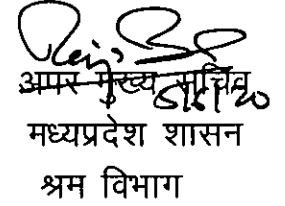 अपर मुख्य सचिव
मध्यप्रदेश शासन
श्रम विभाग